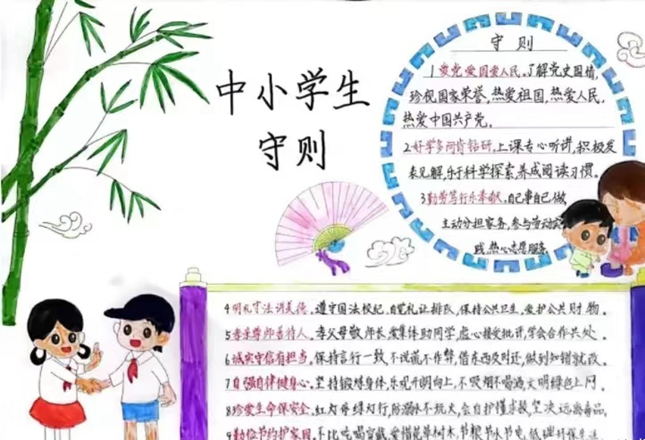 中小学生
守则
守则
1爱党爱国爱人民。了解党史国情,
珍视国家荣誉,热爱祖国,热爱人民,
热爱中国共产党。
2.好学多问肯钻研,上课专心听讲,积极发
表见解,乐于科学探索,养成阅读习惯。
3勤劳笃行乐奉献。自己事自己做,
主动分担家务,参与劳动实
践,热心志愿服务。
4明礼守法讲美德。遵守国法校纪,自觉礼让排队,保持公共卫生,爱护公共财物。
5孝亲尊师善待人。孝父母敬师长,爱集体助同学,虚心接受批评,学会合作共处。
6诚实守信有担当。保持言行一致,不说谎不作弊,借东西及时还,做到知错就改。
7自强自律健身心。坚持锻炼身体,乐观开朗向上,不吸烟不喝酒,文明绿色上网。
8珍爱生命保安全。红灯停绿灯行,防溺水不玩火,会自护懂求救,坚决远离毒品。
9勤俭节约护家园。不比吃喝穿戴,爱惜花草树木,节粮节水节电,低碳环保生活